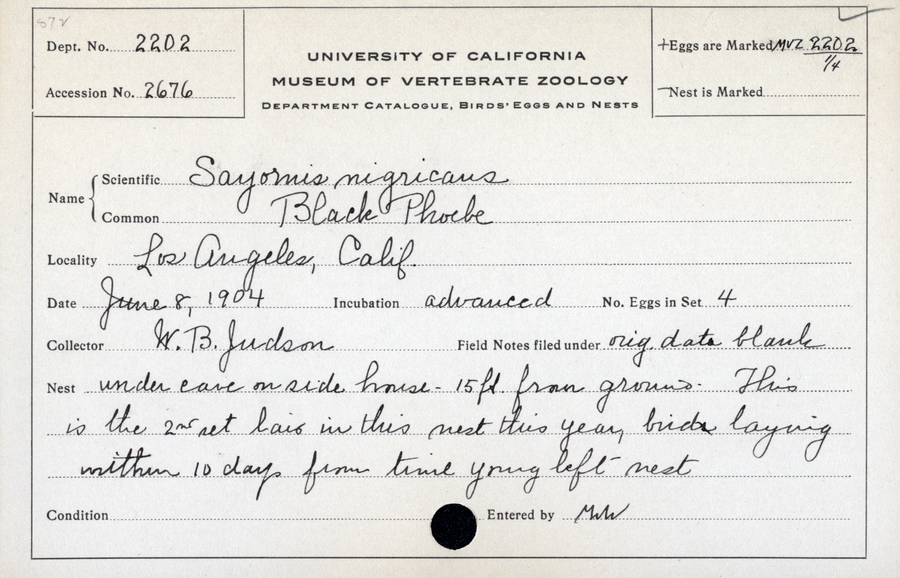 872
Dept. No. 2202
Accession No. 2676
UNIVERSITY OF CALIFORNIA
MUSEUM OF VERTEBRATE ZOOLOGY
DEPARTMENT CATALOGUE, BIRDS' EGGS AND NESTS
+Eggs are Marked MVZ 2202
1/4
—Nest is Marked
Name { Scientific Sayornis nigricans
Common Black Phoebe
Locality Los Angeles, Calif.
Date June 8, 1904 Incubation advanced No. Eggs in Set 4
Collector W. B. Judson Field Notes filed under orig. data blank
Nest under eave on side house - 15 ft from ground. This
is the 2nd set laid in this nest this year, birds laying
within 10 days from time young left nest
Condition Entered by